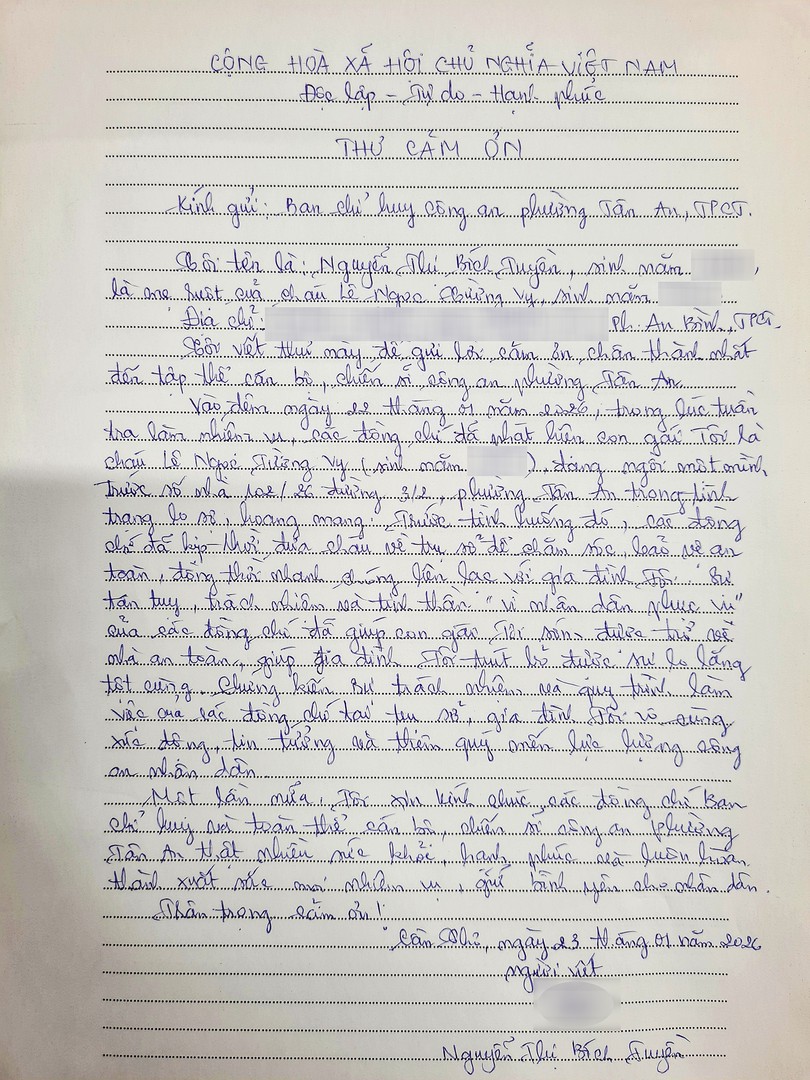 CỘNG HOÀ XÃ HỘI CHỦ NGHĨA VIỆT NAM
Độc lập - Tự do - Hạnh phúc
THƯ CẢM ƠN
Kính gửi: Ban chỉ huy công an phường Tân An, TPCT.
Tôi tên là: Nguyễn Thị Bích Tuyền, sinh năm
là mẹ ruột của cháu Lê Ngọc Tường Vy, sinh năm
Địa chỉ: Ph. An Bình, TPCT.
Tôi viết thư này để gửi lời cảm ơn chân thành nhất
đến tập thể cán bộ, chiến sĩ công an phường Tân An.
Vào đêm ngày 22 tháng 01 năm 2026, trong lúc tuần
tra làm nhiệm vụ, các đồng chí đã phát hiện con gái Tôi là
cháu Lê Ngọc Tường Vy (sinh năm ) đang ngồi một mình
trước số nhà 102/26 đường 3/2, phường Tân An trong tình
trạng lo sợ, hoang mang. Trước tình huống đó, các đồng
chí đã kịp thời đưa cháu về trụ sở để chăm sóc, bảo vệ an
toàn, đồng thời nhanh chóng liên lạc với gia đình Tôi. Sự
tận tụy, trách nhiệm và tinh thần "vì nhân dân phục vụ"
của các đồng chí đã giúp con gái Tôi sớm được trở về
nhà an toàn, giúp gia đình Tôi trút bỏ được sự lo lắng
tột cùng. Chứng kiến sự trách nhiệm và quy trình làm
việc của các đồng chí tại trụ sở, gia đình Tôi vô cùng
xúc động, tin tưởng và thêm quý mến lực lượng công
an nhân dân.
Một lần nữa, Tôi xin kính chúc các đồng chí Ban
chỉ huy và toàn thể cán bộ, chiến sĩ công an phường
Tân An thật nhiều sức khỏe, hạnh phúc và luôn hoàn
thành xuất sắc mọi nhiệm vụ, giữ bình yên cho nhân dân.
Trân trọng cảm ơn!
Cần Thơ, ngày 23 tháng 01 năm 2026
người viết
Nguyễn Thị Bích Tuyền